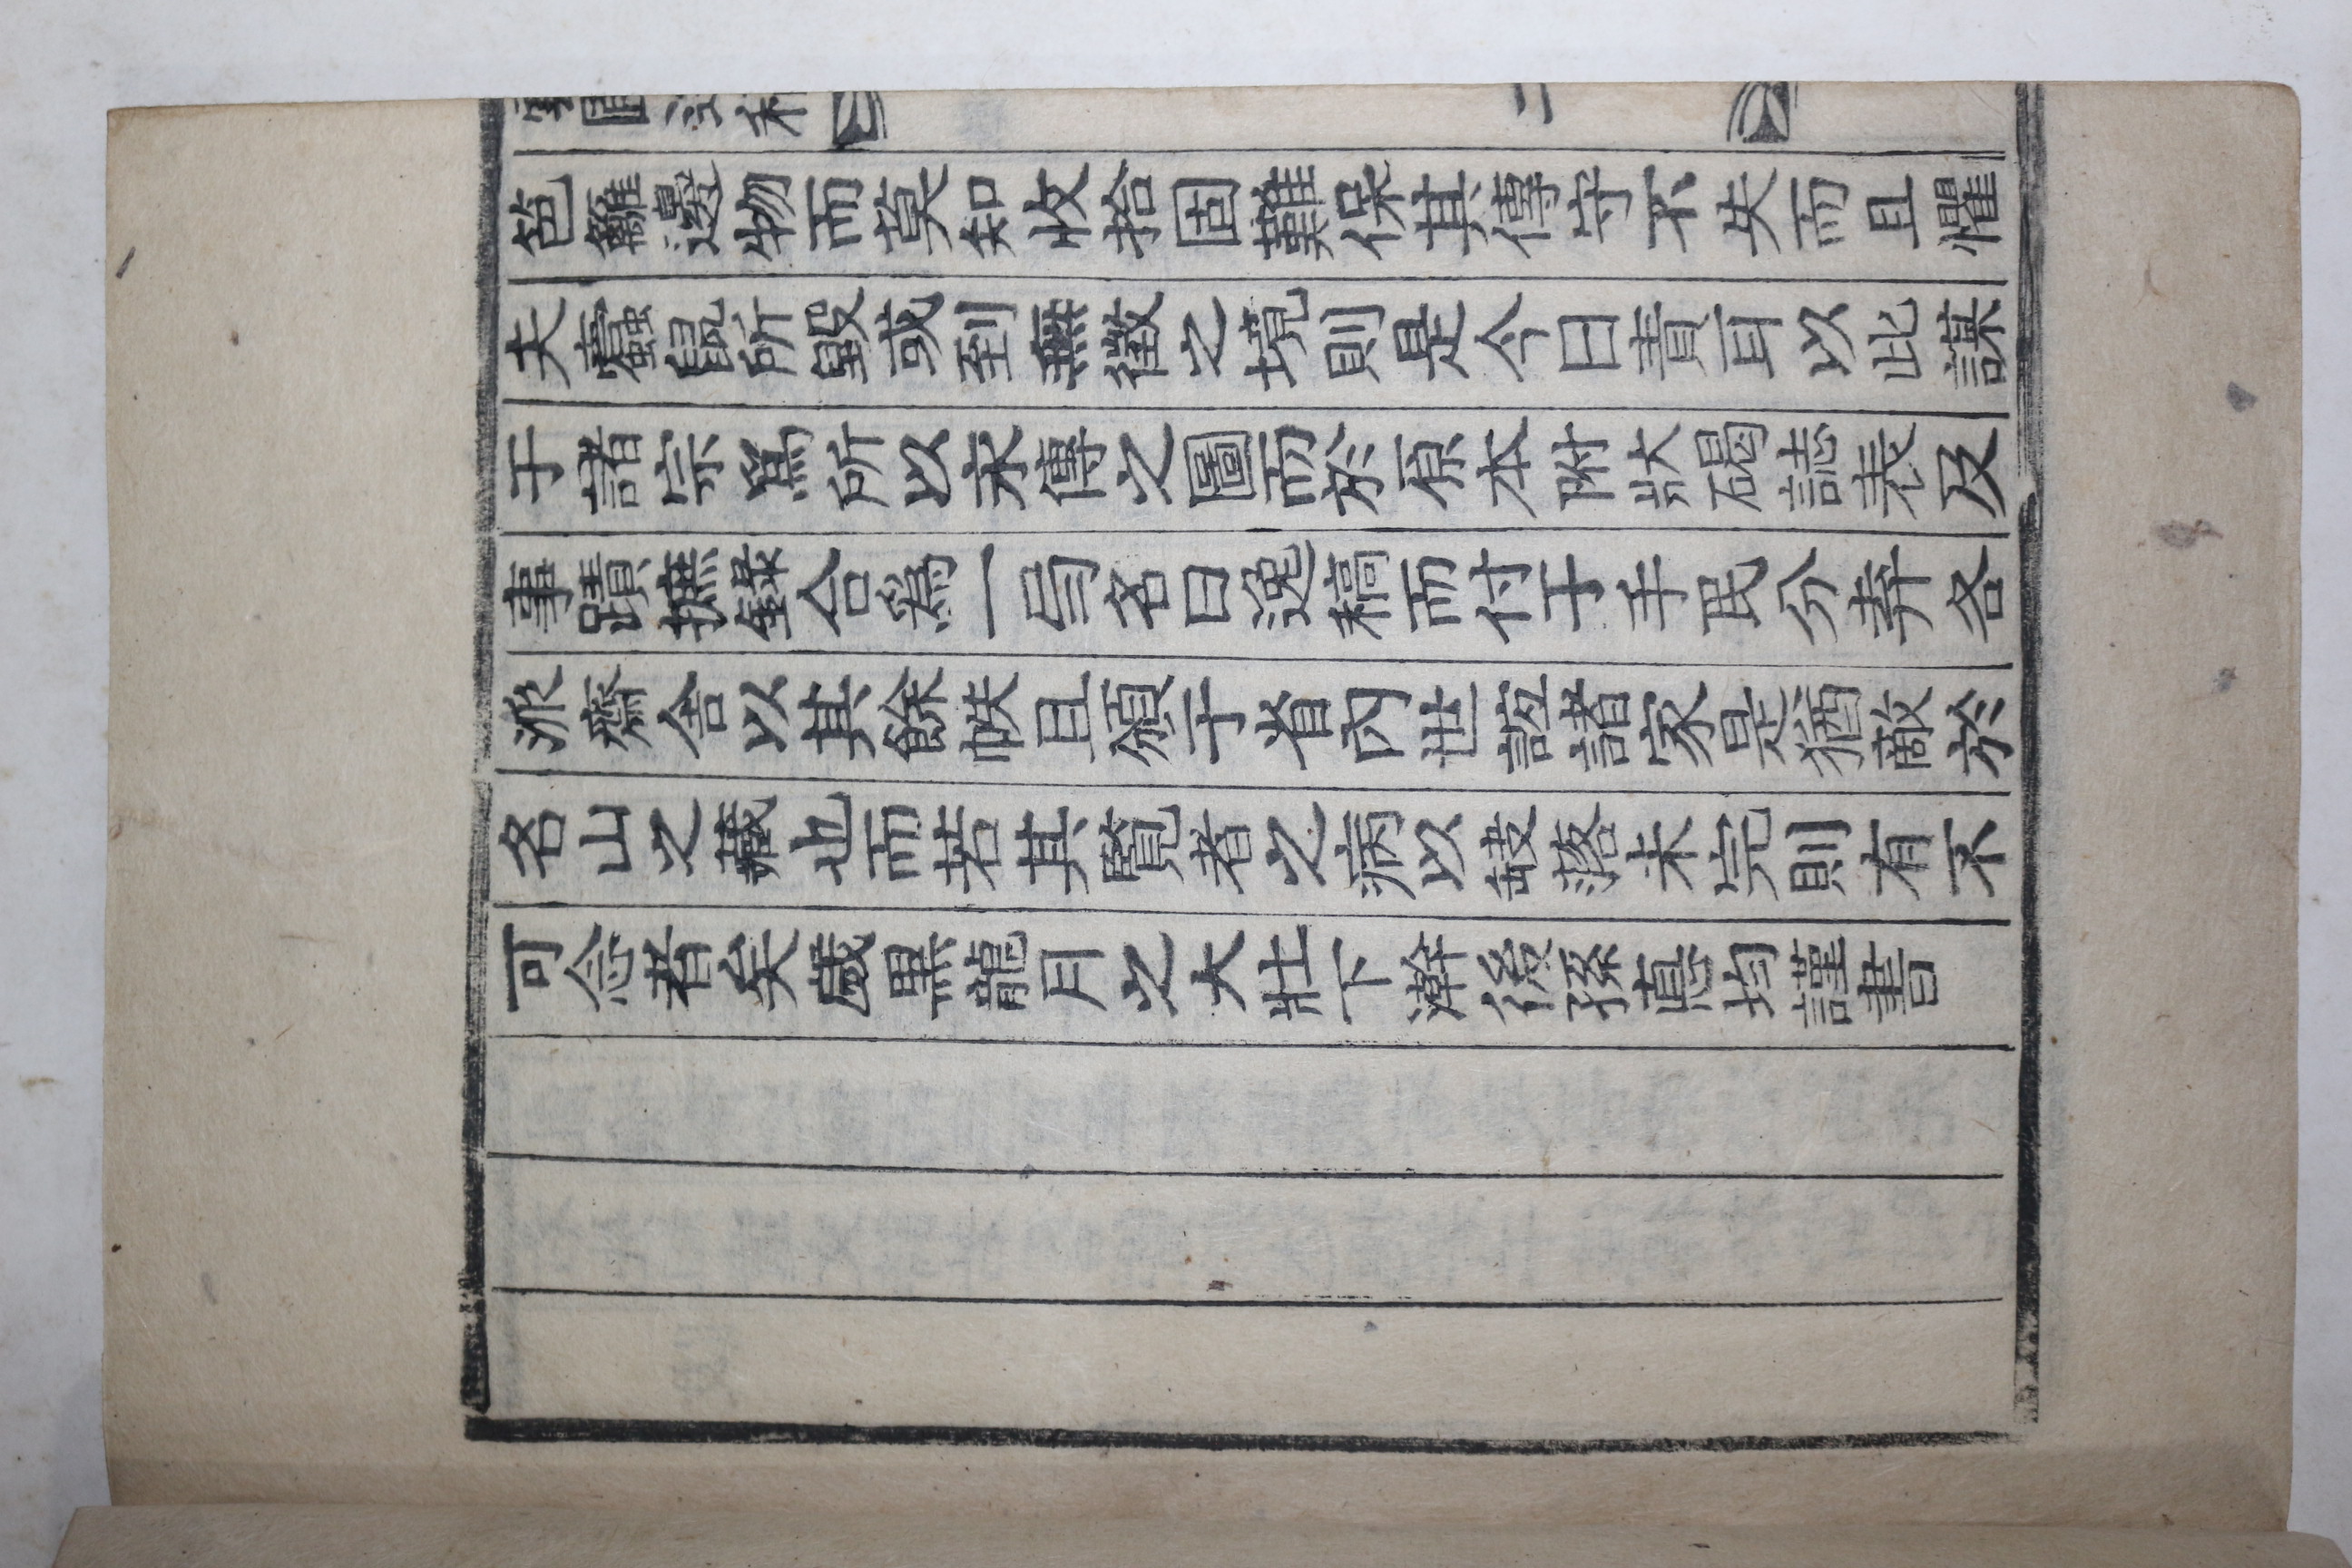 二
笆籬邊物而莫知收拾固難保其傳守不失而且懼
夫蠹鼠所毀或到無徵之境則是今日責耳以此謀
于諸宗爲所以永傳之圖而於原本附狀碣誌表及
事蹟摭錄合爲一名曰逸稿而付于手民分弆各
派齋舍以其餘帙且頒于省內世誼諸家是猶敵於
名山之藏也而若其覽者之病以缺落未完則有不
可念者矣歲黑龍月之大壯下澣後孫悳均謹書